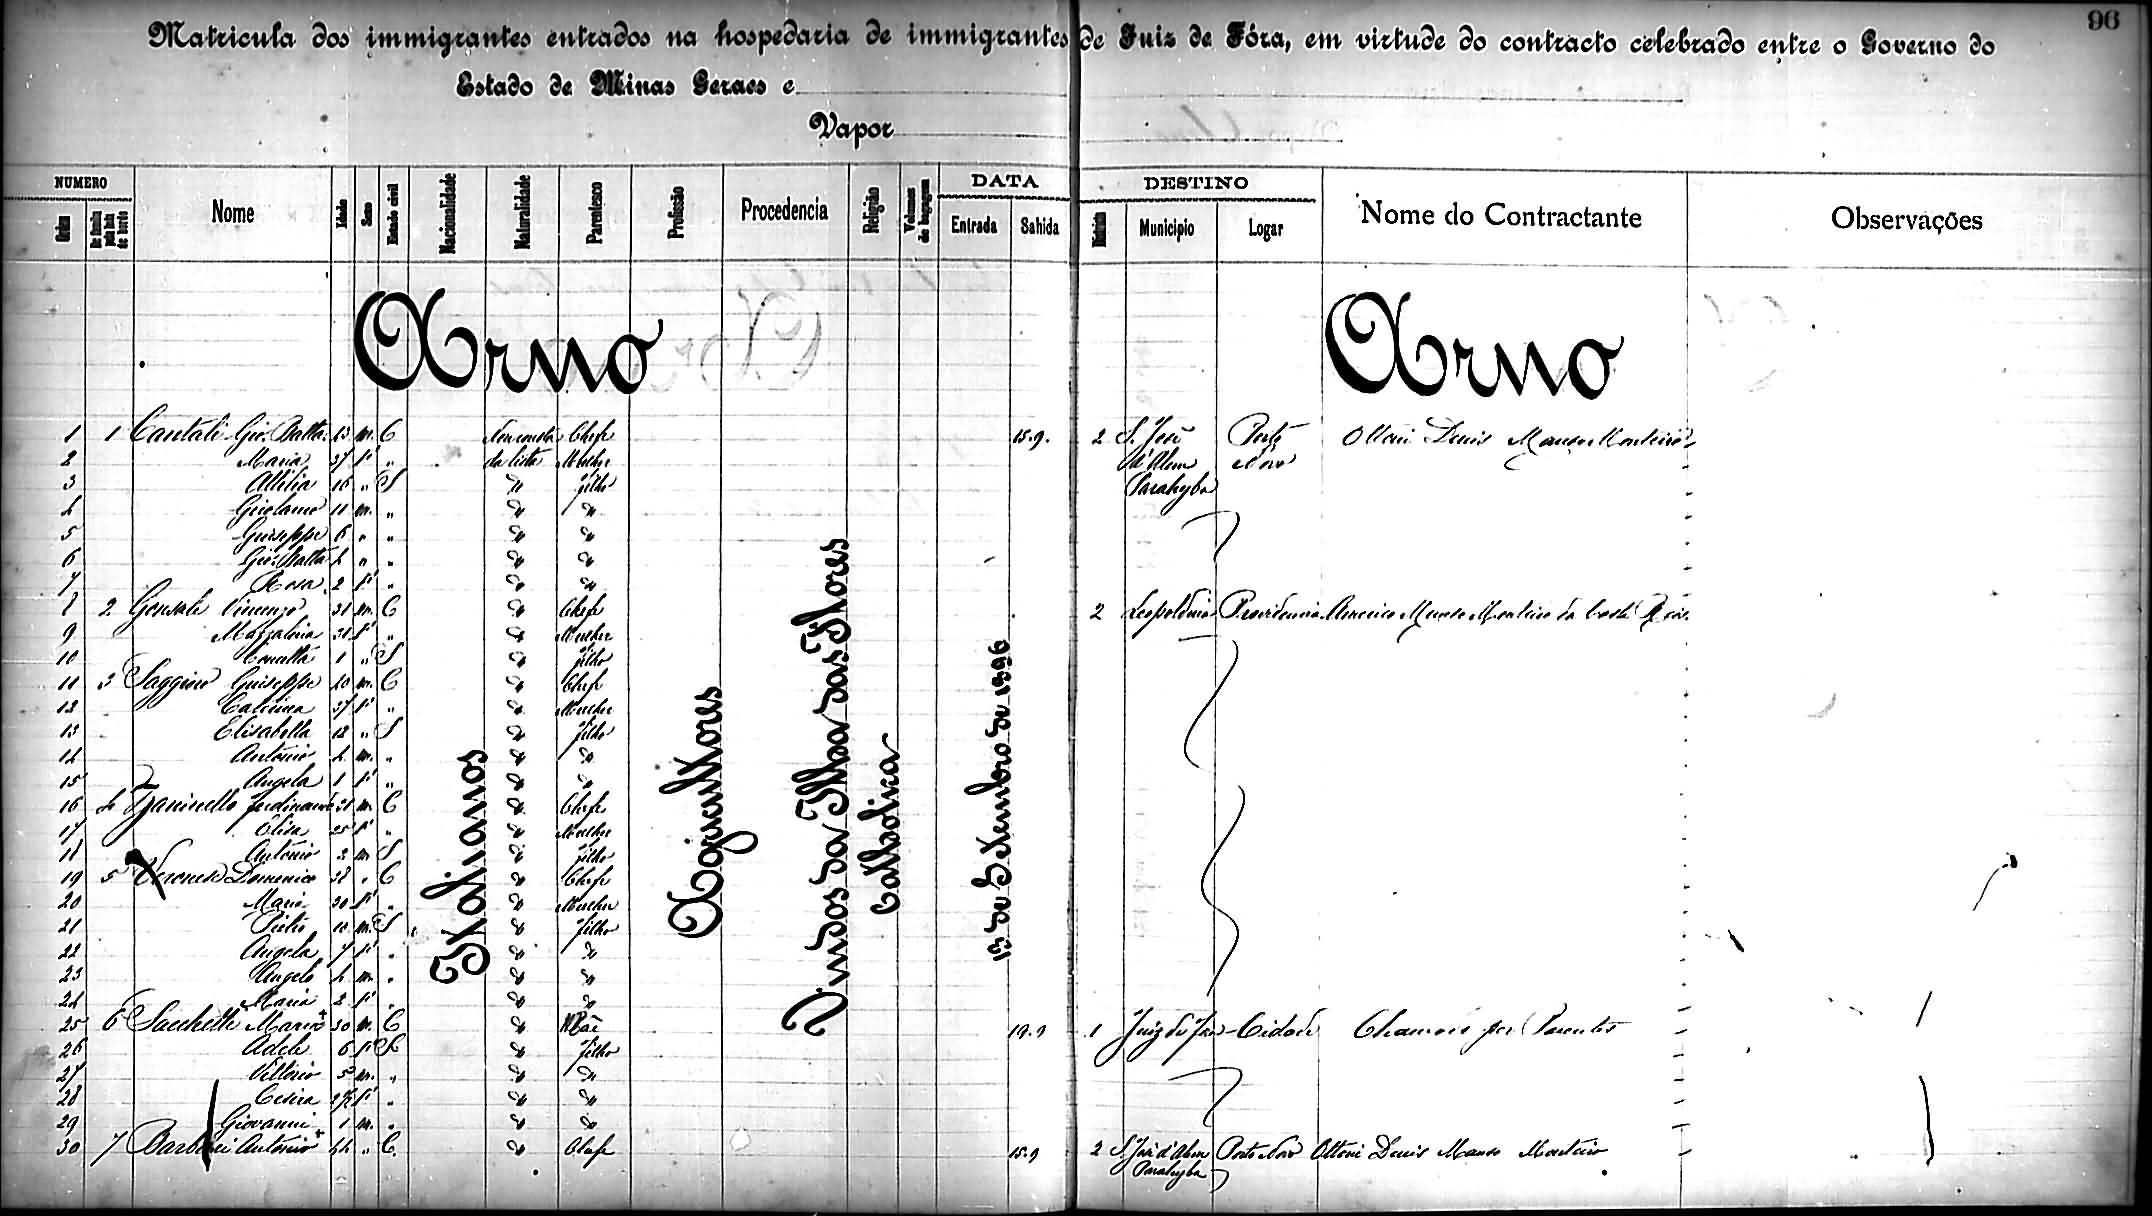 96
Matricula dos immigrantes entrados na hospedaria de immigrantes de Juiz de Fóra, em virtude do contracto celebrado entre o Governo do
Estado de Minas Geraes e
Vapor
NUMERO DATA DESTINO
Ordem De familia pela lista de bordo Nome Idade Sexo Estado civil Nacionalidade Naturalidade Parentesco Profissão Procedencia Religião Volumes de bagagem Entrada Sahida Municipio Logar Nome do Contractante Observações
Arno Arno
Italianos
Agricultores
Vindos da Ilha das Flores
Catholica
13 de Setembro de 1896
1 1 Cantali Gio. Batta m. C Chefe 15.9. 2 S. José Porto Ottoni Diniz Manso Monteiro
2 Maria 37 f. " da lista Mulher d'Alem Novo
3 Attilia 16 " S " filho Parahyba
4 Girolamo 11 m. " " "
5 Guiseppe 6 " " " "
6 Gio. Batta 4 " " " "
7 Rosa 2 f. " " "
8 2 Vincenzo 31 m. C " Chefe 2 Leopoldina Providencia Americo Manso Monteiro da Costa Reis
9 31 f. " " Mulher
10 Concetta 1 " S " filho
11 3 Saggioro Guiseppe 40 m. C " Chefe
12 Caterina 37 f. " " Mulher
13 Elisabetta 12 " S " filho
14 Antonio 4 m. " " "
15 Angela 1 f. " " "
16 4 Zaninello Ferdinando 31 m. C " Chefe
17 Elisa 25 f. " " Mulher
18 Antonio 2 m. S " filho
19 5 Veronese Domenico 38 " C " Chefe
20 Maria 30 f. " " Mulher
21 Pietro 10 m. S " filho
22 Angela 7 f. " " "
23 Angelo 4 m. " " "
24 Maria 2 f. " " "
25 6 Sacchetti Maria 30 m. C " Mãe 19.9 1 Juiz de Fora Cidade Chamado por Parentes
26 Adele 6 f. S " filho
27 Vittorio 5 m. " " "
28 Cesira f. " " "
29 Giovanni 1 m. " " "
30 7 Barbieri Antonio 44 " C. " Chefe 15.9 2 S. José d'Alem Porto Novo Ottoni Diniz Manso Monteiro
Parahyba